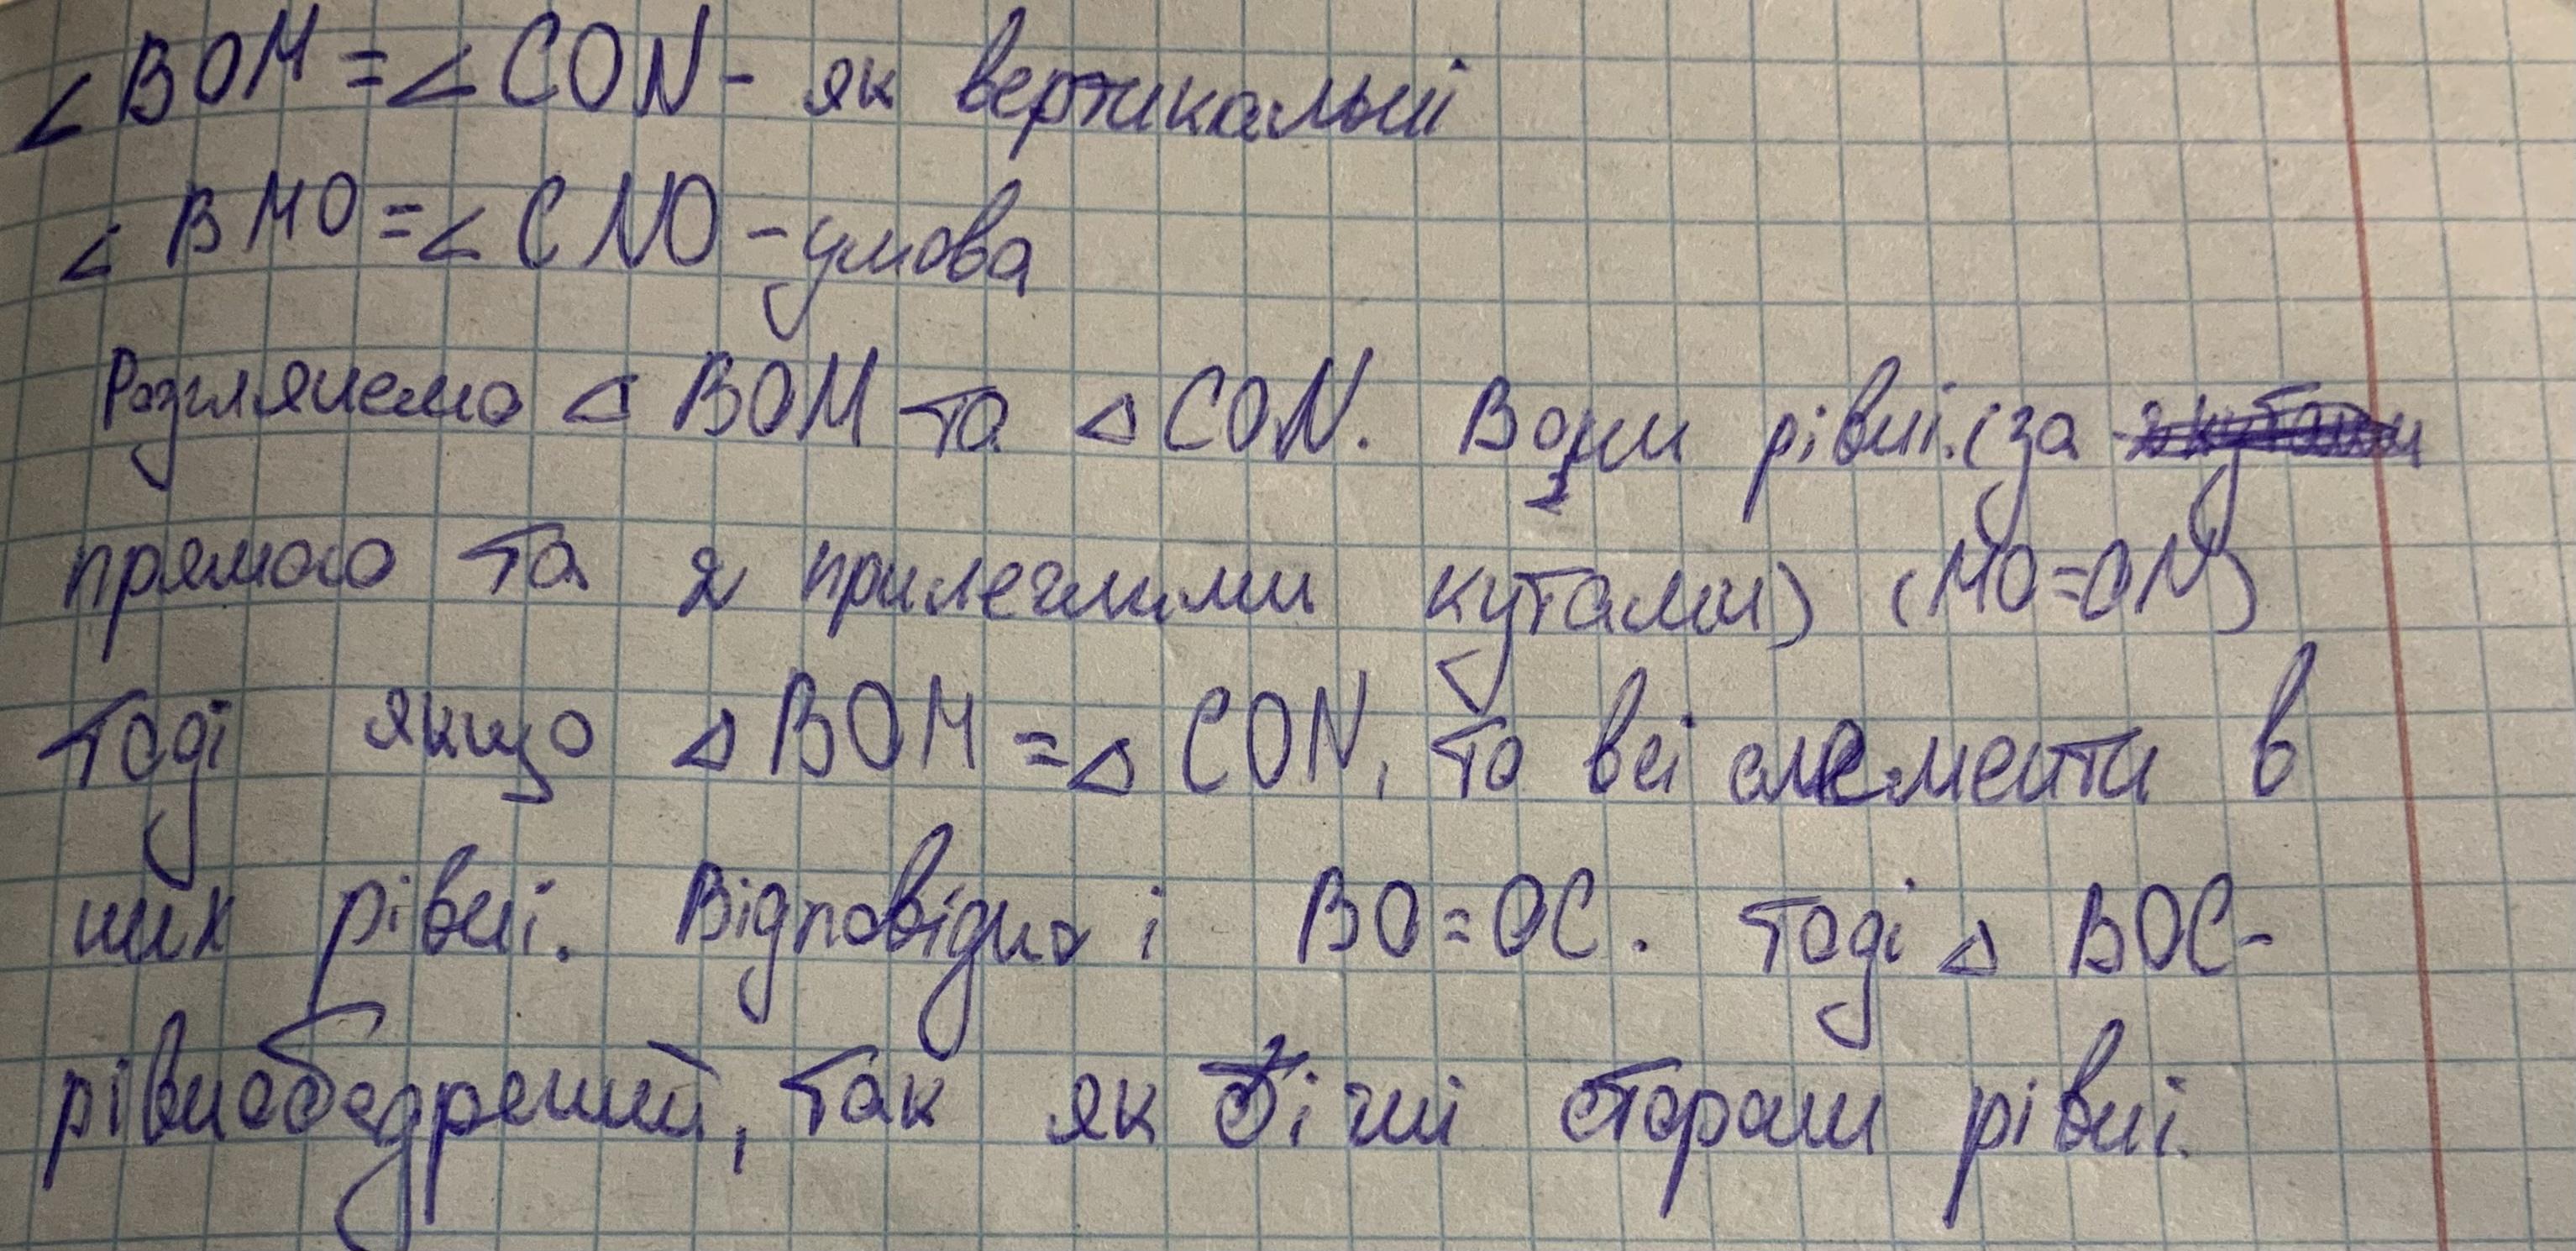 ∠BOM = ∠CON - як вертикальні
∠BMO = ∠CNO - умова
Розглянемо △ BOM та △ CON. Вони рівні. (за
прямою та 2 прилеглими кутами) (MO=ON)
Тоді якщо △ BOM = △ CON, то всі елементи в
них рівні. Відповідно і BO=OC. Тоді △ BOC-
рівнобедрений, так як бічні сторони рівні.